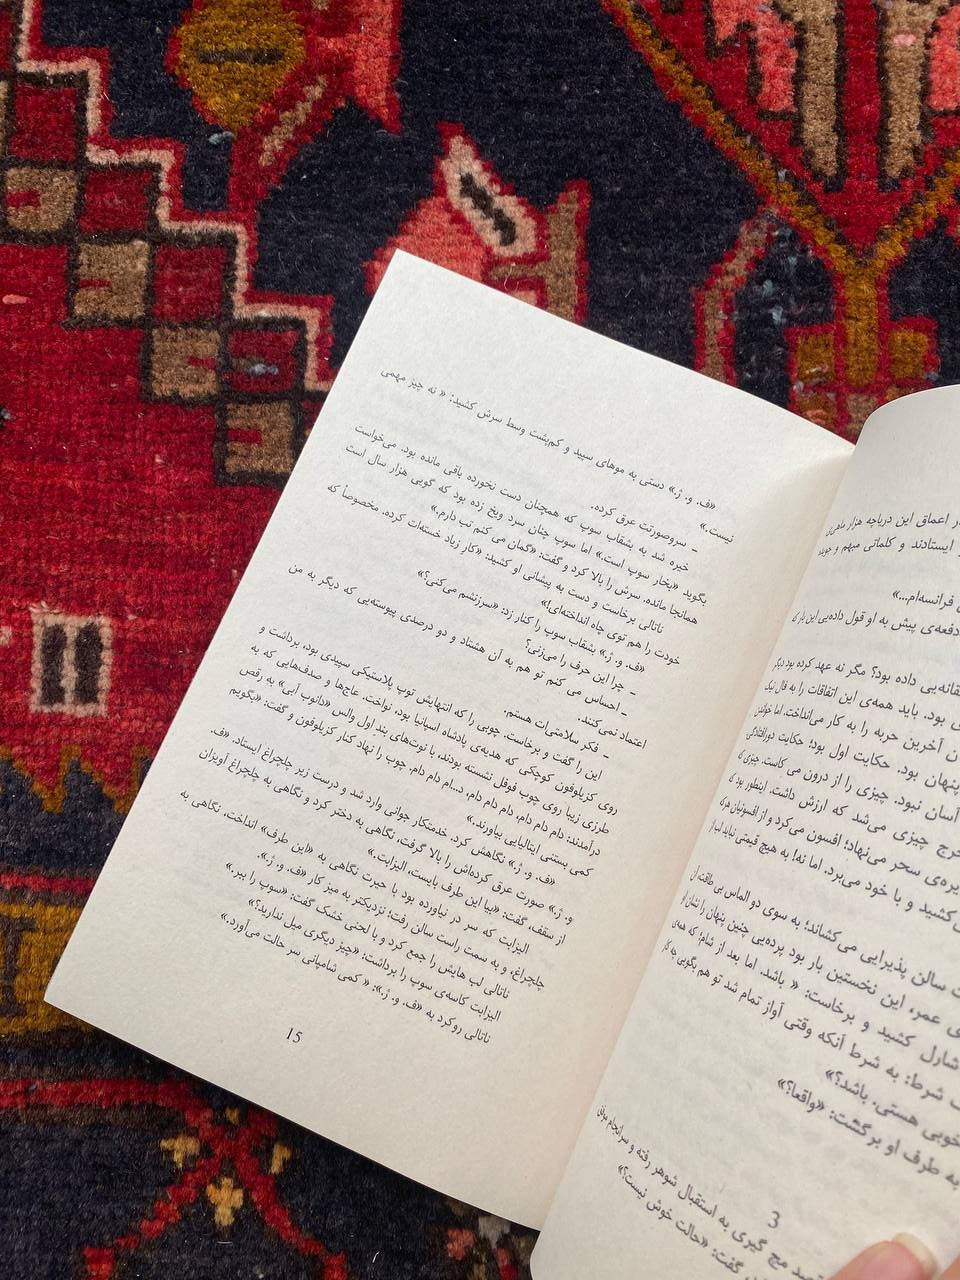 در اعماق این دریاچه هزار ماهی
ایستادند و کلماتی مبهم و جوید
فرانسه‌ام...»
دفعه‌ی پیش به او قول داده‌یی این بار که
قانه‌یی داده بود؟ مگر نه عهد کرده بود دیگر
ی بود. باید همه‌ی این اتفاقات را به فال نیک
ن آخرین حربه را به کار می‌انداخت. اما
پنهان بود. حکایت اول بود؛ حکایت دورافتادگی
آسان نبود. چیزی را از درون می کاست. چیزی که
خرج چیزی می‌شد که ارزش داشت. اینطور بود که
یره‌ی سحر می‌نهاد؛ افسون می‌کرد و از افسونیان هم که
کشید و با خود می‌برد. اما نه! به هیچ قیمتی نباید لب از
ت سالن پذیرایی می‌کشاند؛ به سوی دو الماس بی طاقت آن
ی عمر، این نخستین بار بود پرده‌یی چنین پنهان را نشان او
شارل کشید و برخاست: « باشد. اما بعد از شام؛ که همه‌ی
ک شرط: به شرط آنکه وقتی آواز تمام شد تو هم بگویی چه کار
خوبی هستی. باشد؟»
به طرف او برگشت: «واقعا؟»
3
صد مچ گیری به استقبال شوهر رفته و سرانجام موفق
گفت: «حالت خوش نیست؟»
«ف. و. ژ.» دستی به موهای سپید و کم‌پشت وسط سرش کشید: « نه چیز مهمی
نیست.»
ـ سروصورتت عرق کرده.
خیره شد به بشقاب سوپ که همچنان دست نخورده باقی مانده بود. می‌خواست
بگوید «بخار سوپ است.» اما سوپ چنان سرد ویخ زده بود که گویی هزار سال است
همانجا مانده. سرش را بالا کرد و گفت: «گمان می کنم تب دارم.»
ناتالی برخاست و دست به پیشانی او کشید: «کار زیاد خسته‌ات کرده. مخصوصاً که
خودت را هم توی چاه انداخته‌ای!»
«ف. و. ژ.» بشقاب سوپ را کنار زد: «سرزنشم می‌کنی؟»
ـ چرا این حرف را می‌زنی؟
ـ احساس می کنم تو هم به آن هشتاد و دو درصدی پیوسته‌یی که دیگر به من
اعتماد نمی‌کنند.
ـ فکر سلامتی‌ات هستم.
این را گفت و برخاست. چوبی را که انتهایش توپ پلاستیکی سپیدی بود، برداشت و
روی کزیلوفون کوچکی که هدیه‌ی پادشاه اسپانیا بود، نواخت. عاج‌ها و صدف‌هایی که به
طرزی زیبا روی چوب فوفل نشسته بودند، با نوت‌های بند اول والس «دانوب آبی» به رقص
درآمدند: دام دام دام، دام دام دام، د...ام دام دام. چوب را نهاد کنار کزیلوفون و گفت: «بگویم
کمی بستنی ایتالیایی بیاورند.»
«ف. و. ژ.» نگاهش کرد. خدمتکار جوانی وارد شد و درست زیر چلچراغ ایستاد. «ف.
و. ژ.» صورت عرق کرده‌اش را بالا گرفت، نگاهی به دختر کرد و نگاهی به چلچراغ آویزان
از سقف، گفت: «بیا این طرف بایست، الیزابت.»
الیزابت که سر در نیاورده بود با حیرت نگاهی به «این طرف» انداخت، نگاهی به
چلچراغ، و به سمت راست سالن رفت؛ نزدیکتر به میز کار «ف. و. ژ.».
ناتالی لب هایش را جمع کرد و با لحنی خشک گفت: «سوپ را ببر.»
الیزابت کاسه‌ی سوپ را برداشت: «چیز دیگری میل ندارید؟»
ناتالی روکرد به «ف. و. ژ.»: « کمی شامپانی سر حالت می‌آورد.»
15